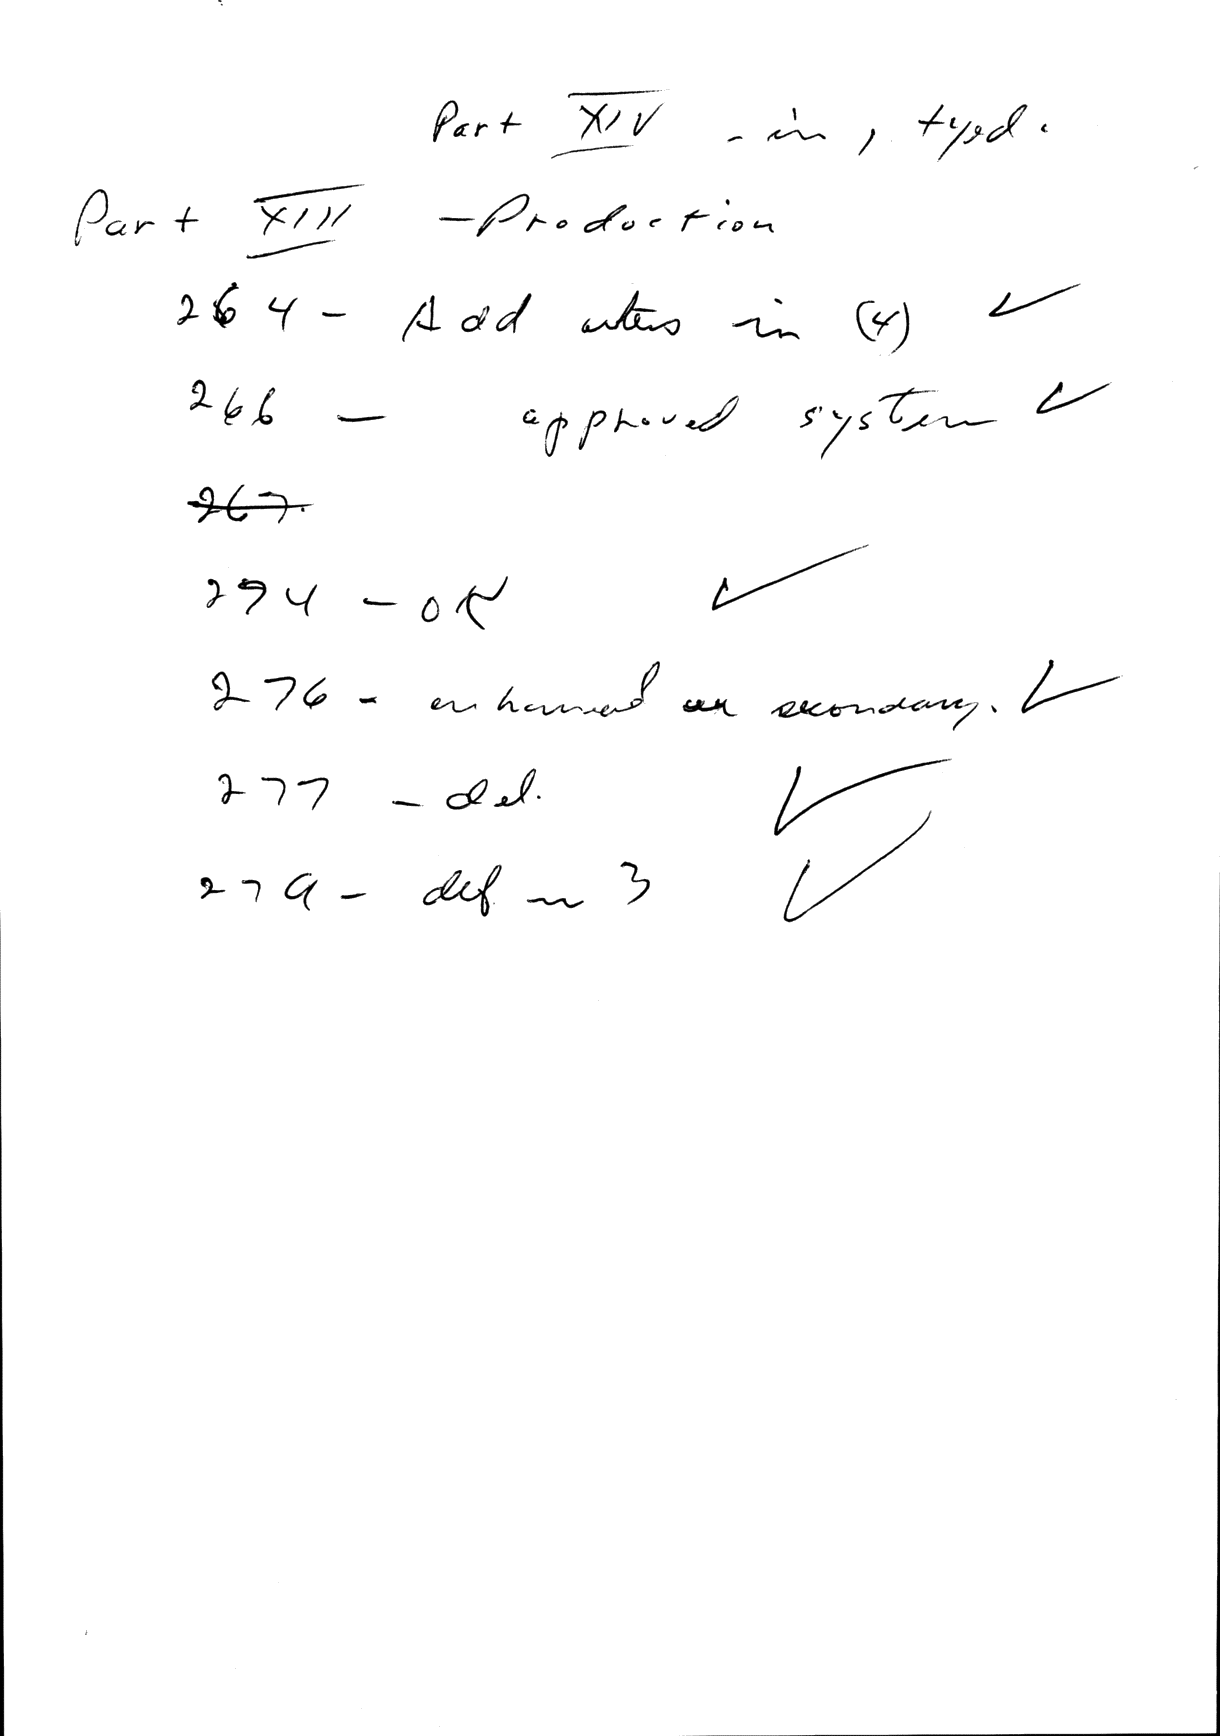 Part XIV - in, typed.
Part XIII - Production
264 - Add in (4) ✓
266 - approved system ✓
267.
294 - OK ✓
276 - enhanced secondary. ✓
277 - del. ✓
279 - def in 3 ✓